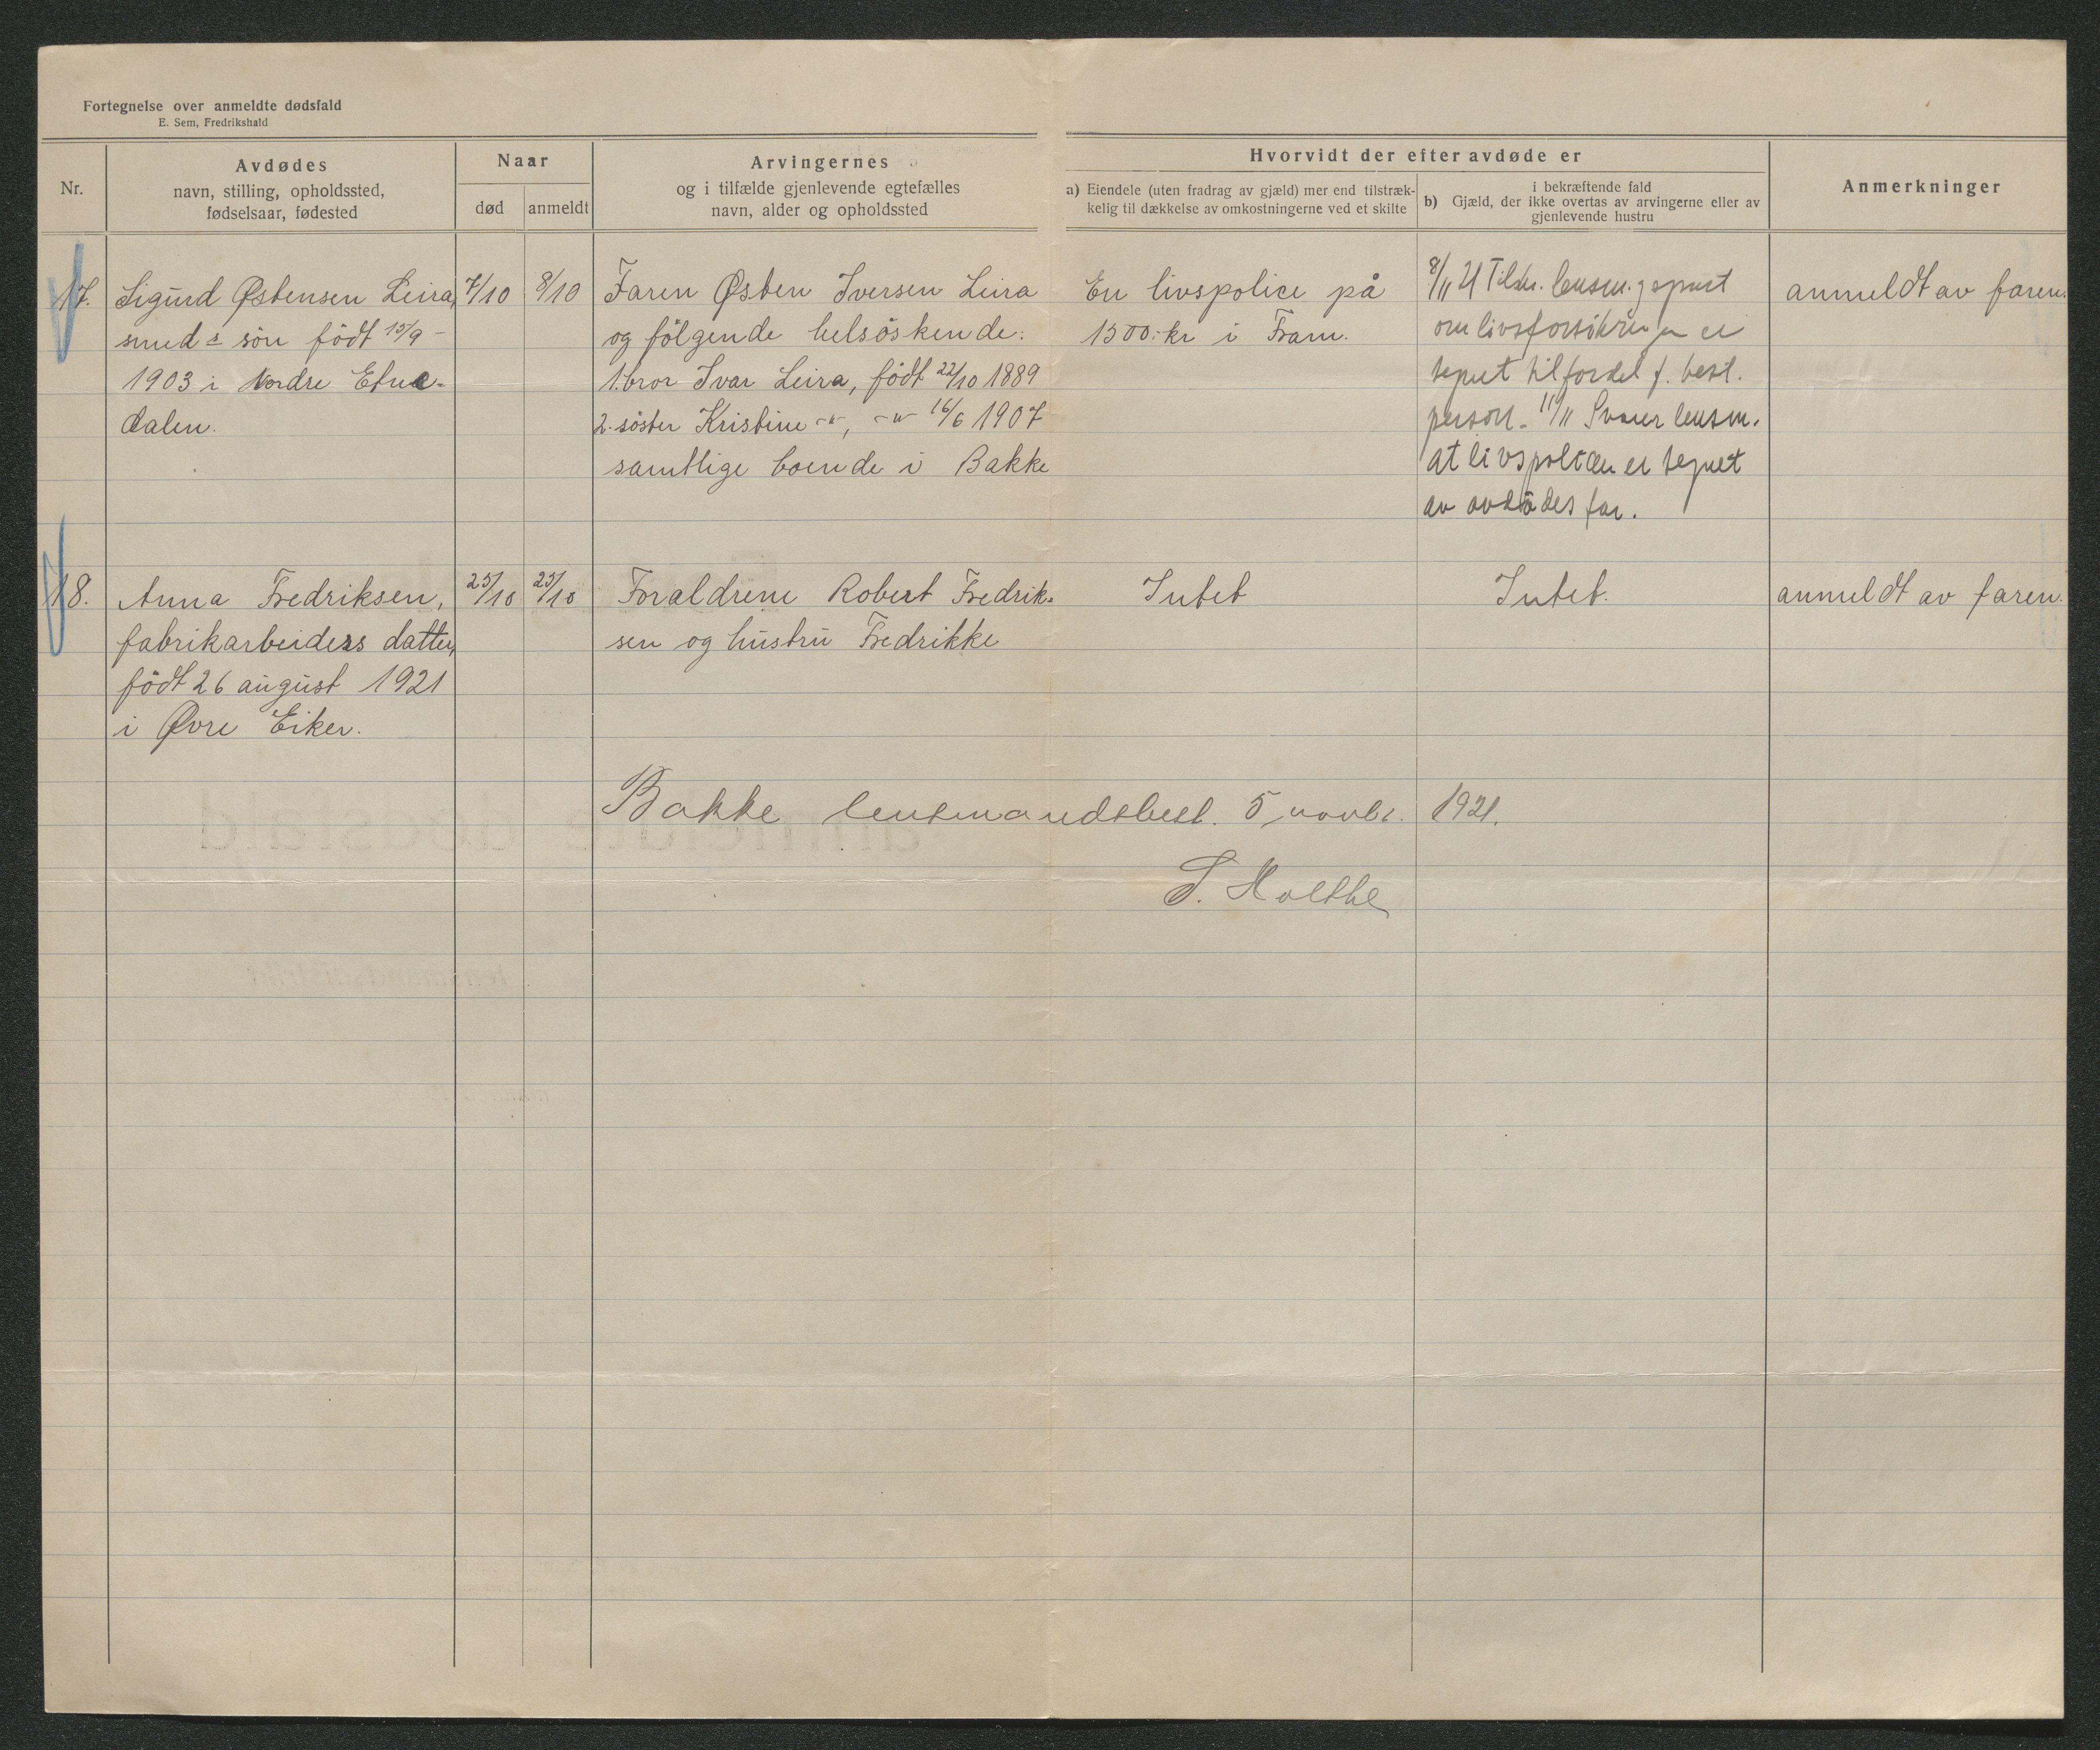 Fortegnelse over anmeldte dødsfald
E. Sem, Fredrikshald
Nr.
Avdødes
navn, stilling, opholdssted,
fødselsaar, fødested
Naar
død
anmeldt
Arvingernes
og i tilfælde gjenlevende egtefælles
navn, alder og opholdssted
Hvorvidt der efter avdøde er
a) Eiendele (uten fradrag av gjæld) mer end tilstræk-
kelig til dækkelse av omkostningerne ved et skifte
i bekræftende fald
b) Gjæld, der ikke overtas av arvingerne eller av
gjenlevende hustru
Anmerkninger
17.
Sigurd Østensen Leira,
smeds søn født 15/9 -
1903 i Nordre Etne-
dalen.
7/10
8/10
Faren Østen Iversen Leira
og følgende helsøskende:
1. bror Ivar Leira, født 22/10 1889
2. søster Kristine -"-, -"- 16/6 1907
samtlige boende i Bakke
En livspolice på
1500: kr i Fram.
8/11 21 Tilskr. lensm. g spurt
om livsforsikringen er
tegnet til fordel f. best.
person. 11/11 Svarer lensm.
at livspolicen er tegnet
av avdødes far.
anmeldt av faren.
18.
Anna Fredriksen,
fabrikarbeiders datter,
født 26 august 1921
i Øvre Eiker.
25/10
25/10
Foraldrene Robert Fredrik-
sen og hustru Fredrikke
Intet
Intet.
anmeldt av faren.
Bakke lensmandsbest. 5 novbr. 1921.
S. Holthe